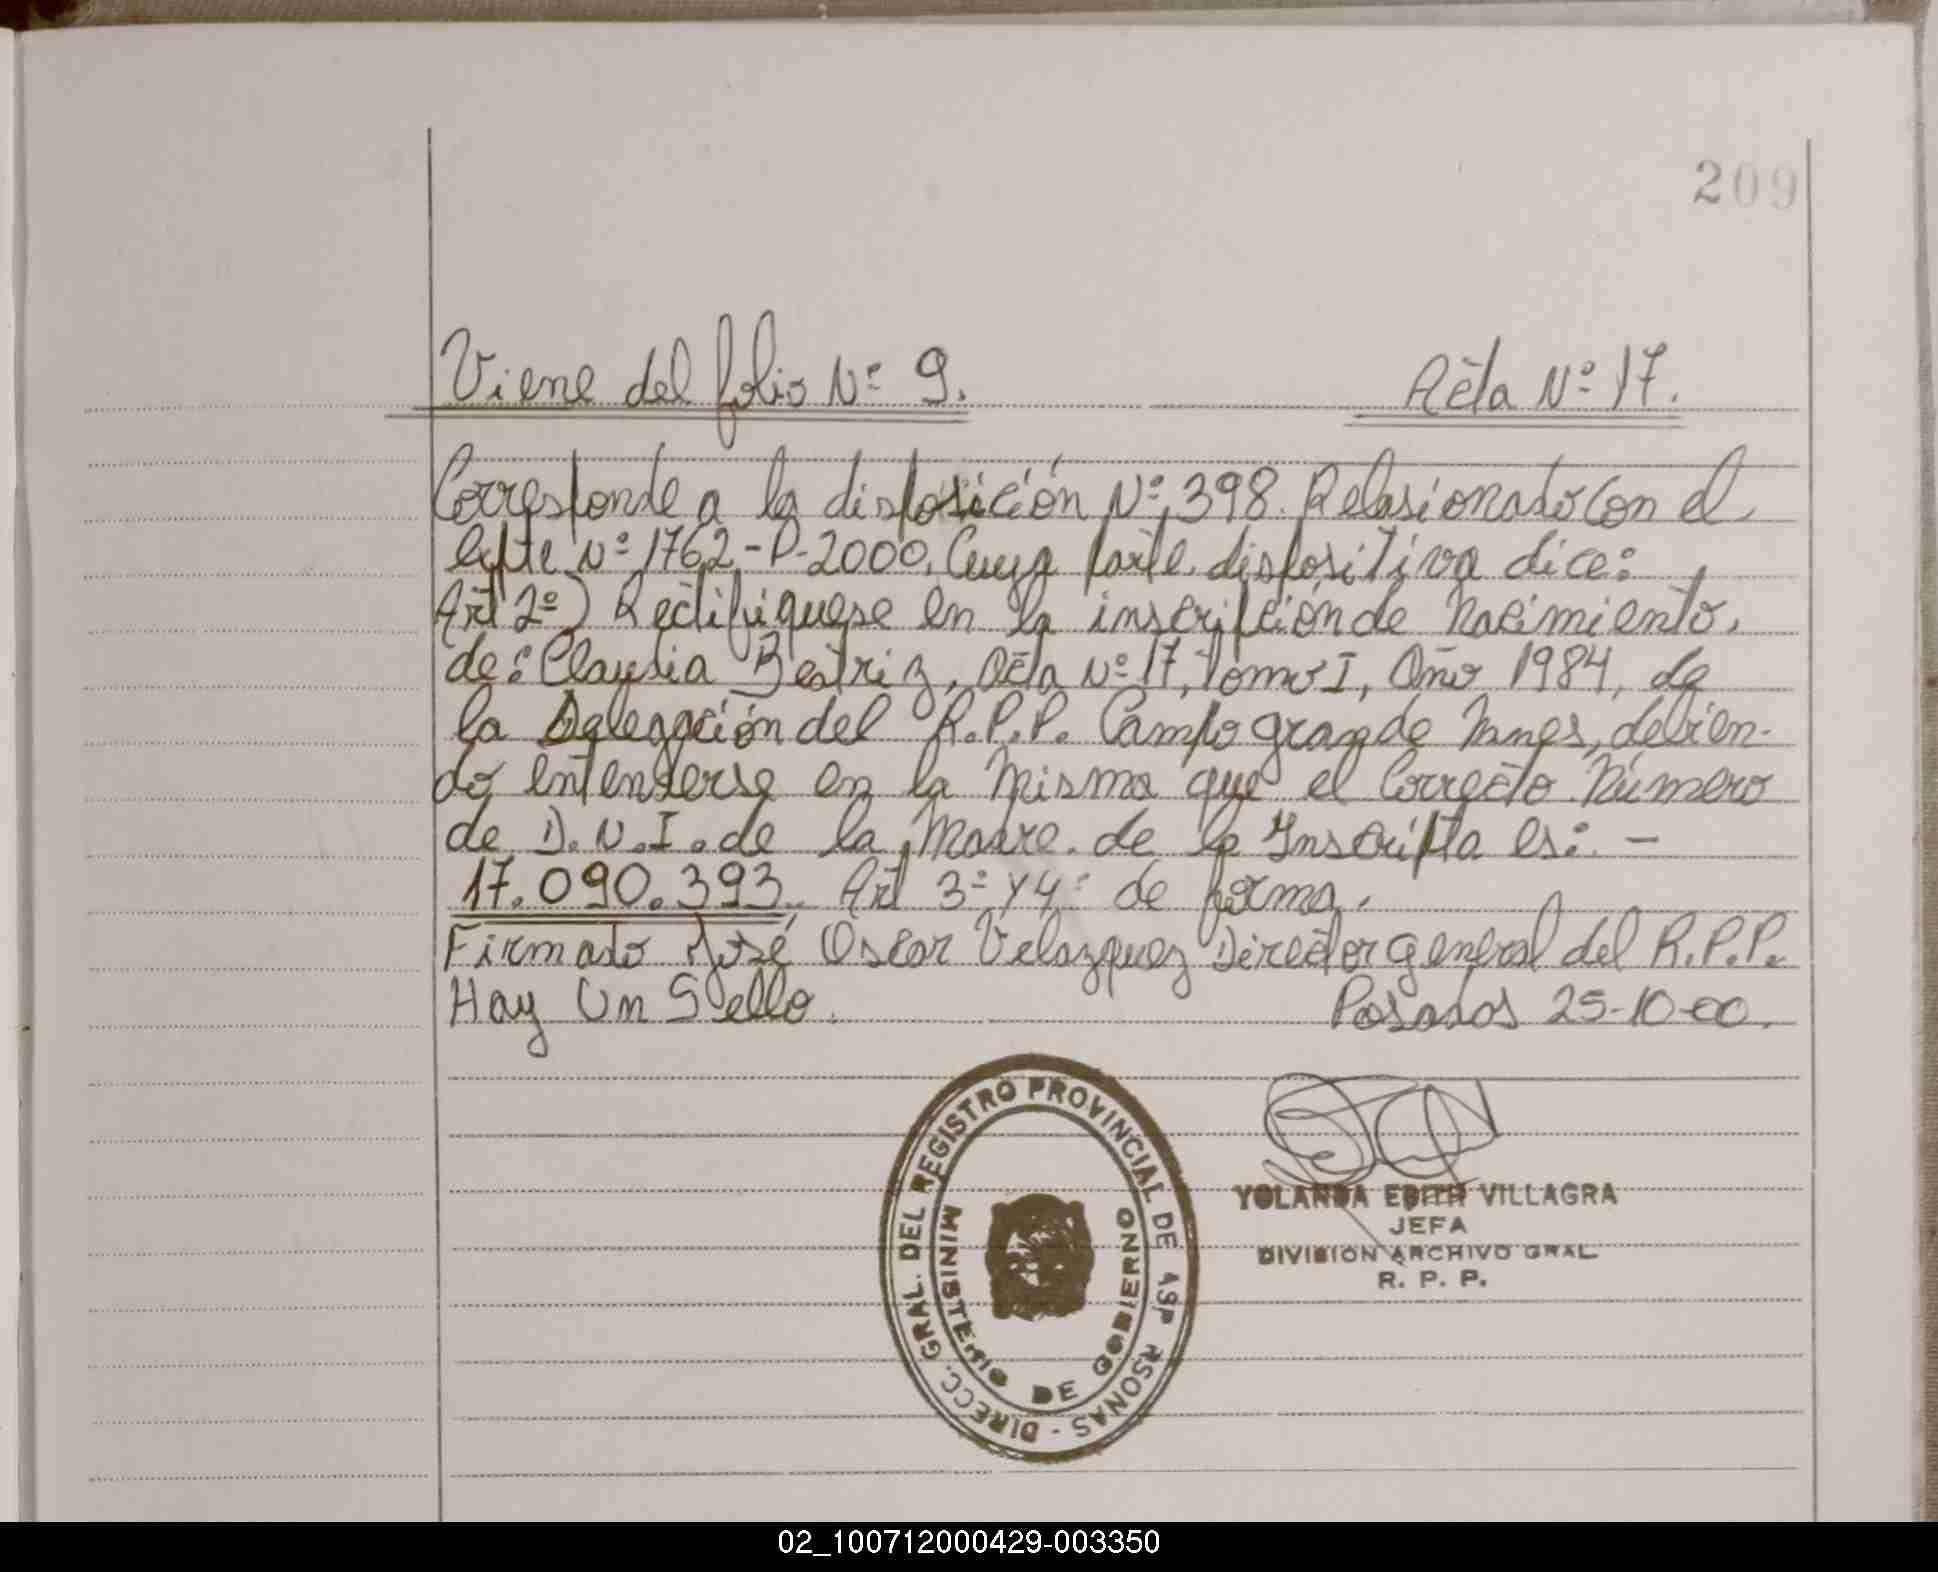 209
Viene del folio Nº 9. Acta Nº 17.
Corresponde a la disposición Nº 398. Relasionado con el
Expte Nº 1762-P-2000, Cuya parte dispositiva dice:
Art 2º) Rectifiquese en la inscripción de nacimiento.
de: Claudia Beatriz, Acta Nº 17, Tomo I, Año 1984, de
la Delegación del R.P.P. Campo grande Mnes, debien-
do entenderse en la misma que el Correcto Número
de D.N.I. de la Madre. de la Inscripta es: -
17.090.393, Art 3º y 4º de forma.
Firmado José Oscar Velazquez Director general del R.P.P.
Hay Un Sello. Posadas 25-10-00.
DIRECC. GRAL. DEL REGISTRO PROVINCIAL DE ASP RSONAS -
MINISTERIO DE GOBIERNO
YOLANDA EDITH VILLAGRA
JEFA
DIVISION ARCHIVO GRAL
R. P. P.
02_100712000429-003350